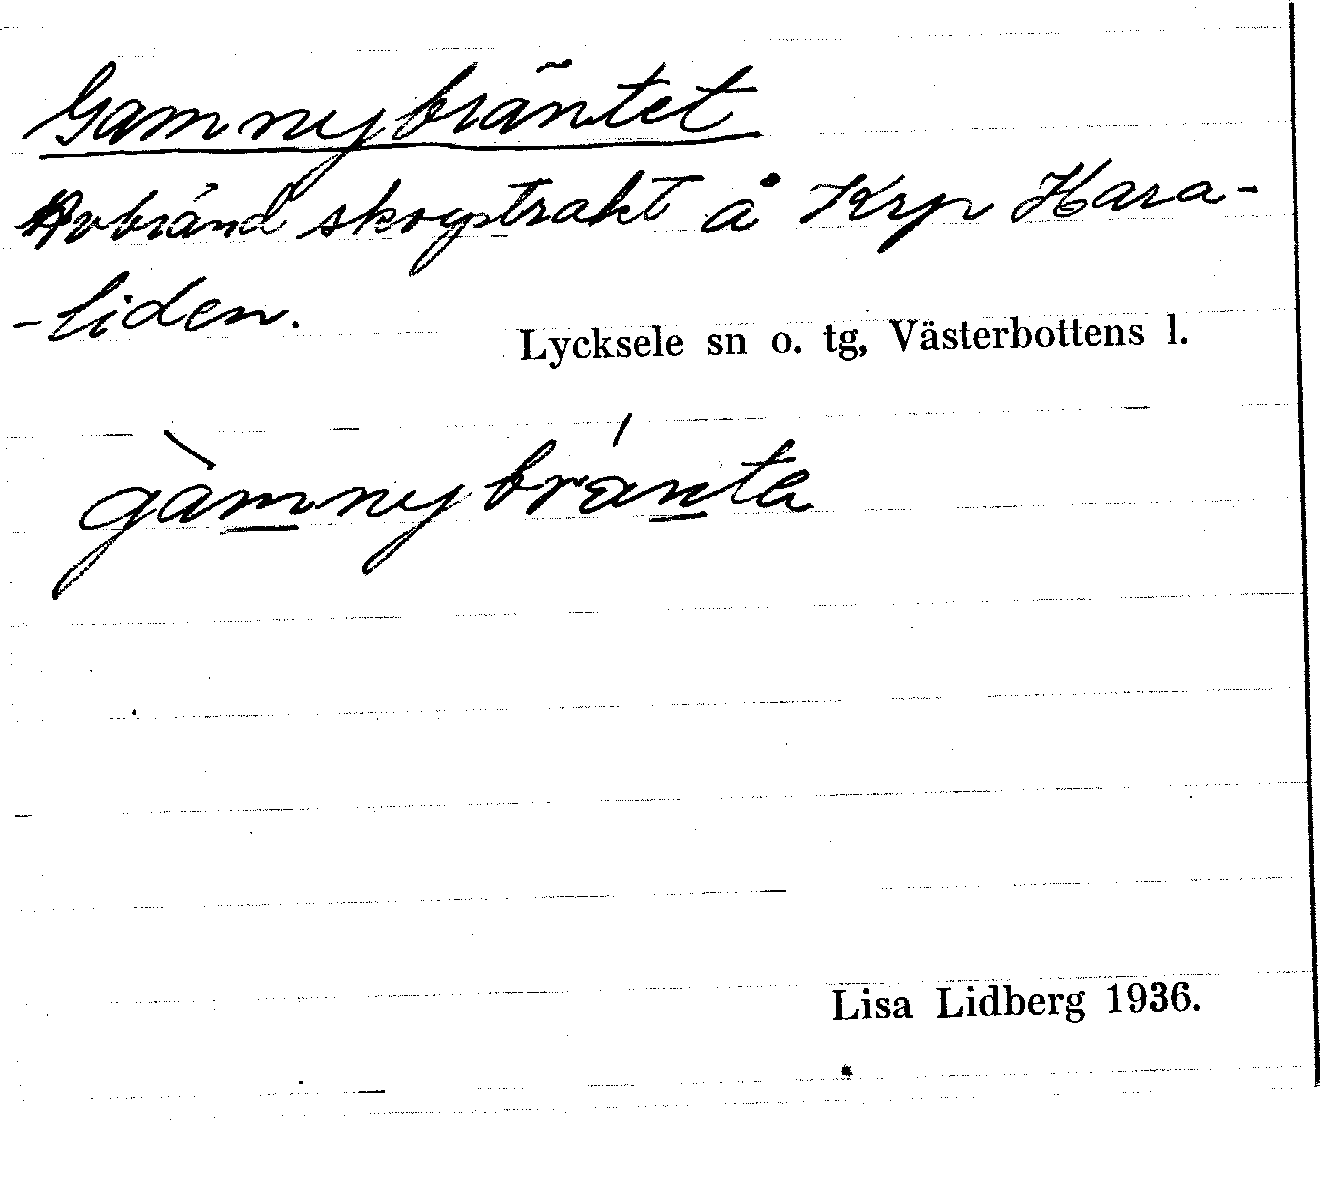 Gammybräntet
Avbränd skogstrakt å Krp Hara-
-liden.
Lycksele sn o. tg, Västerbottens l.
gàmmybränta
Lisa Lidberg 1936.